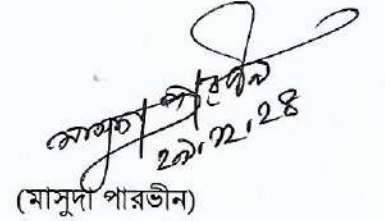 মাসুদা পারভীন
২৯.১২.২৪
(মাসুদা পারভীন)